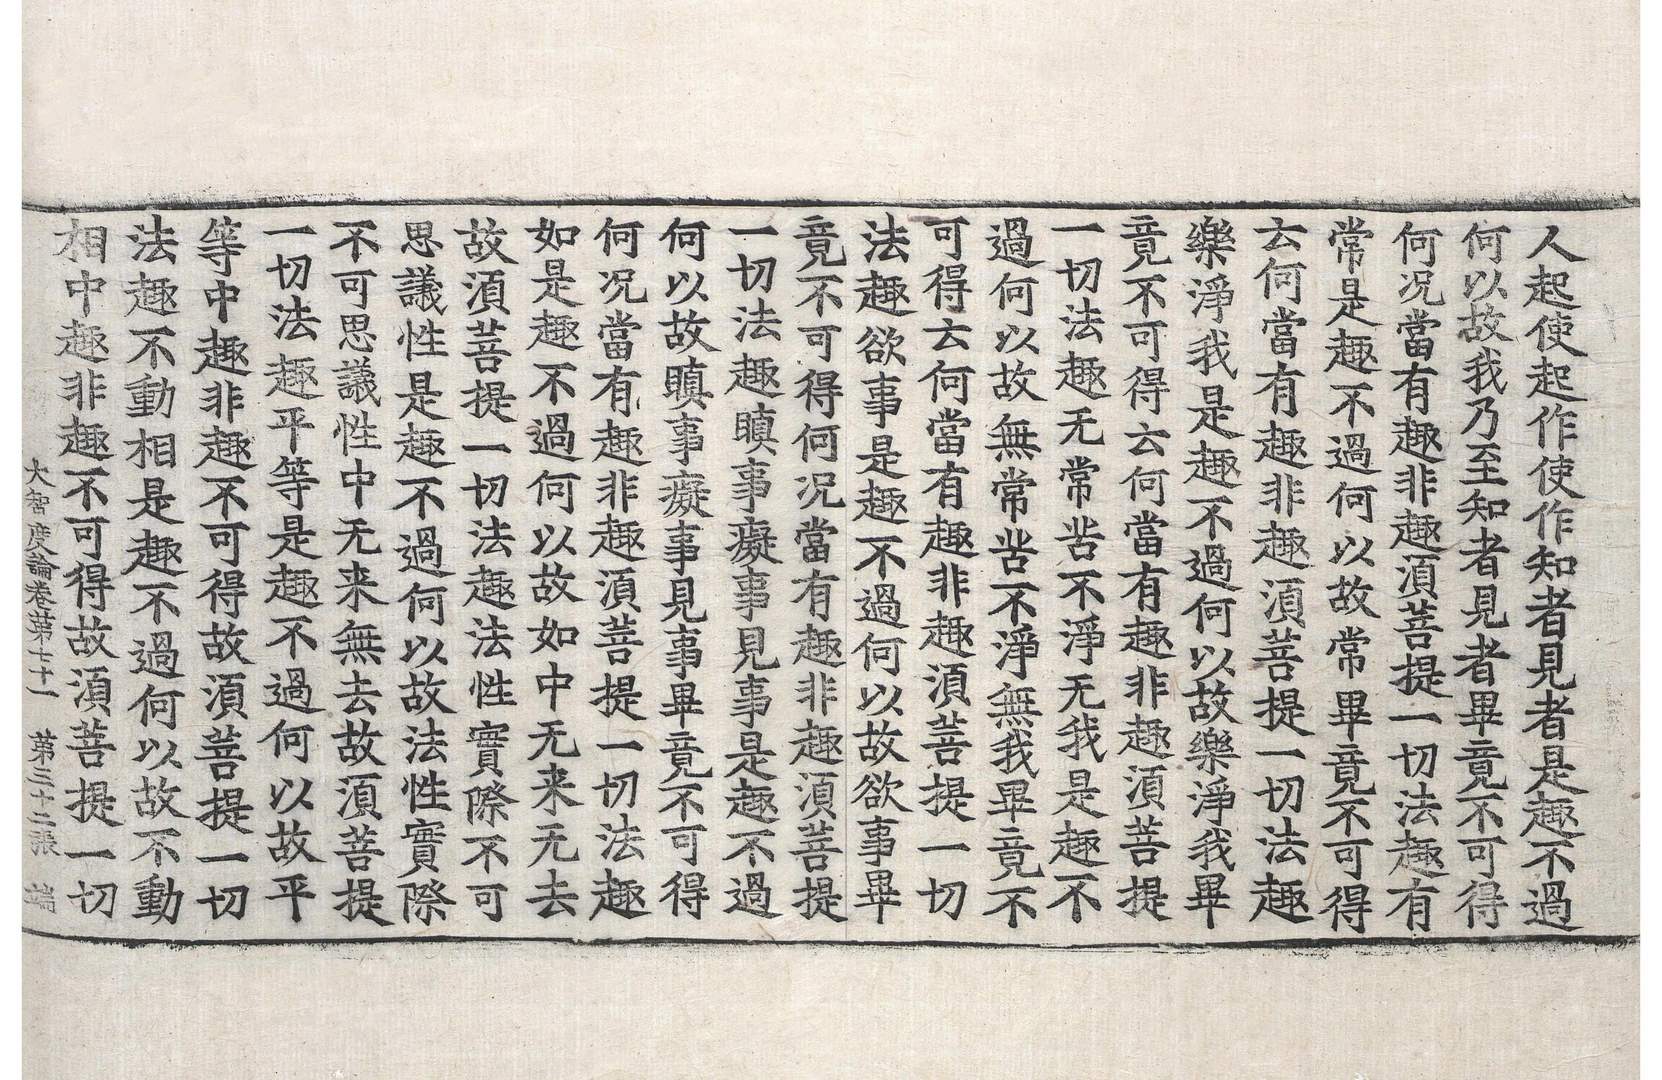 人起使起作使作知者見者是趣不過
何以故我乃至知者見者畢竟不可得
何况當有趣非趣須菩提一切法趣有
常是趣不過何以故常畢竟不可得
云何當有趣非趣須菩提一切法趣
樂淨我是趣不過何以故樂淨我畢
竟不可得云何當有趣非趣須菩提
一切法趣无常苦不淨无我是趣不
過何以故無常苦不淨無我畢竟不
可得云何當有趣非趣須菩提一切
法趣欲事是趣不過何以故欲事畢
竟不可得何况當有趣非趣須菩提
一切法趣瞋事癡事見事是趣不過
何以故瞋事癡事見事畢竟不可得
何况當有趣非趣須菩提一切法趣
如是趣不過何以故如中无来无去
故須菩提一切法趣法性實際不可
思議性是趣不過何以故法性實際
不可思議性中无来無去故須菩提
一切法趣平等是趣不過何以故平
等中趣非趣不可得故須菩提一切
法趣不動相是趣不過何以故不動
相中趣非趣不可得故須菩提一切
大智度論卷第七十一 第三十二張 端